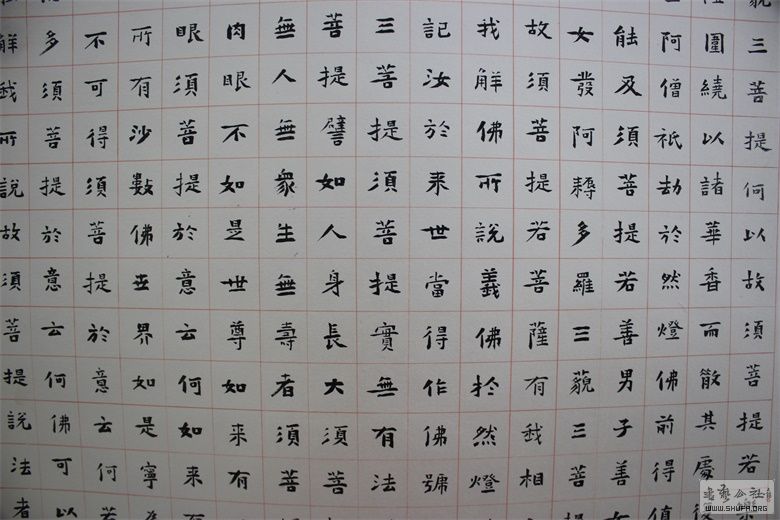 藐三菩提何以故須菩提若
圍繞以諸華香而散其處復
阿僧祇劫於然燈佛前得值
能及須菩提若善男子善
女發阿耨多羅三藐三菩
故須菩提若菩薩有我相
我解佛所說義佛於然燈
記汝於来世當得作佛號
三菩提須菩提實無有法
菩提譬如人身長大須菩
無人無衆生無壽者須菩
肉眼不如是世尊如来有
眼須菩提於意云何如来有
所有沙數佛世界如是寧為
不可得須菩提於意云何
多須菩提於意云何佛可以
解我所說故須菩提說法者
WWW.SHUFA.ORG